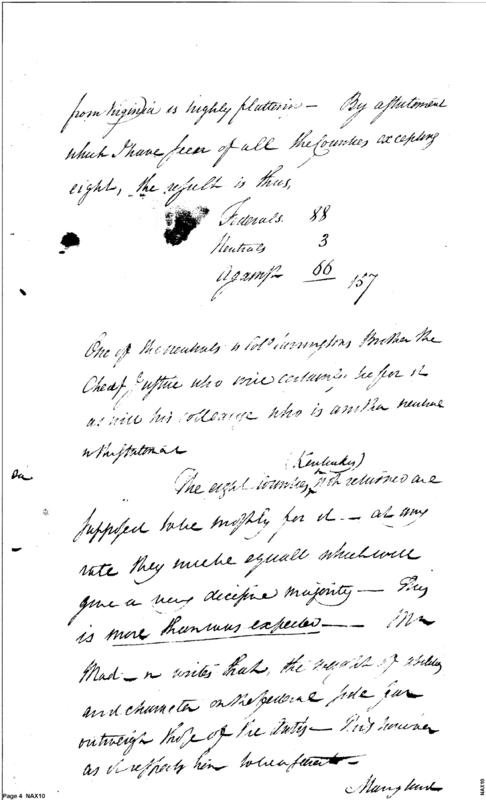 from Virginia is highly flatterin — By a statement
which I have seen of all the Counties excepting
eight, the result is thus,
Federals 88
Neutrals 3
Against 66
157
One of the neutrals is Colo Carringtons Brother the
Cheaf Justice who will certainly be for it
as will his colleague who is another neutral
in the
(Kentucky)
The eight Counties not returned are
supposed to be mostly for it — at any
rate they will be equall which will
give a very decisive majority — This
is more than was expected — Mr
Mad—n writes that, the weight of abilities
and character on the federal side far
outweigh those of the Antis — This however
as it respects him
Maryland
Page 4 NAX10
NAX10